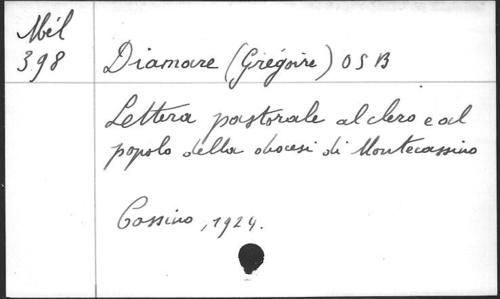 Mél
398
Diamare (Grégoire) OSB
Lettera pastorale al clero e al
popolo della diocesi di Montecassino
Cassino, 1924.